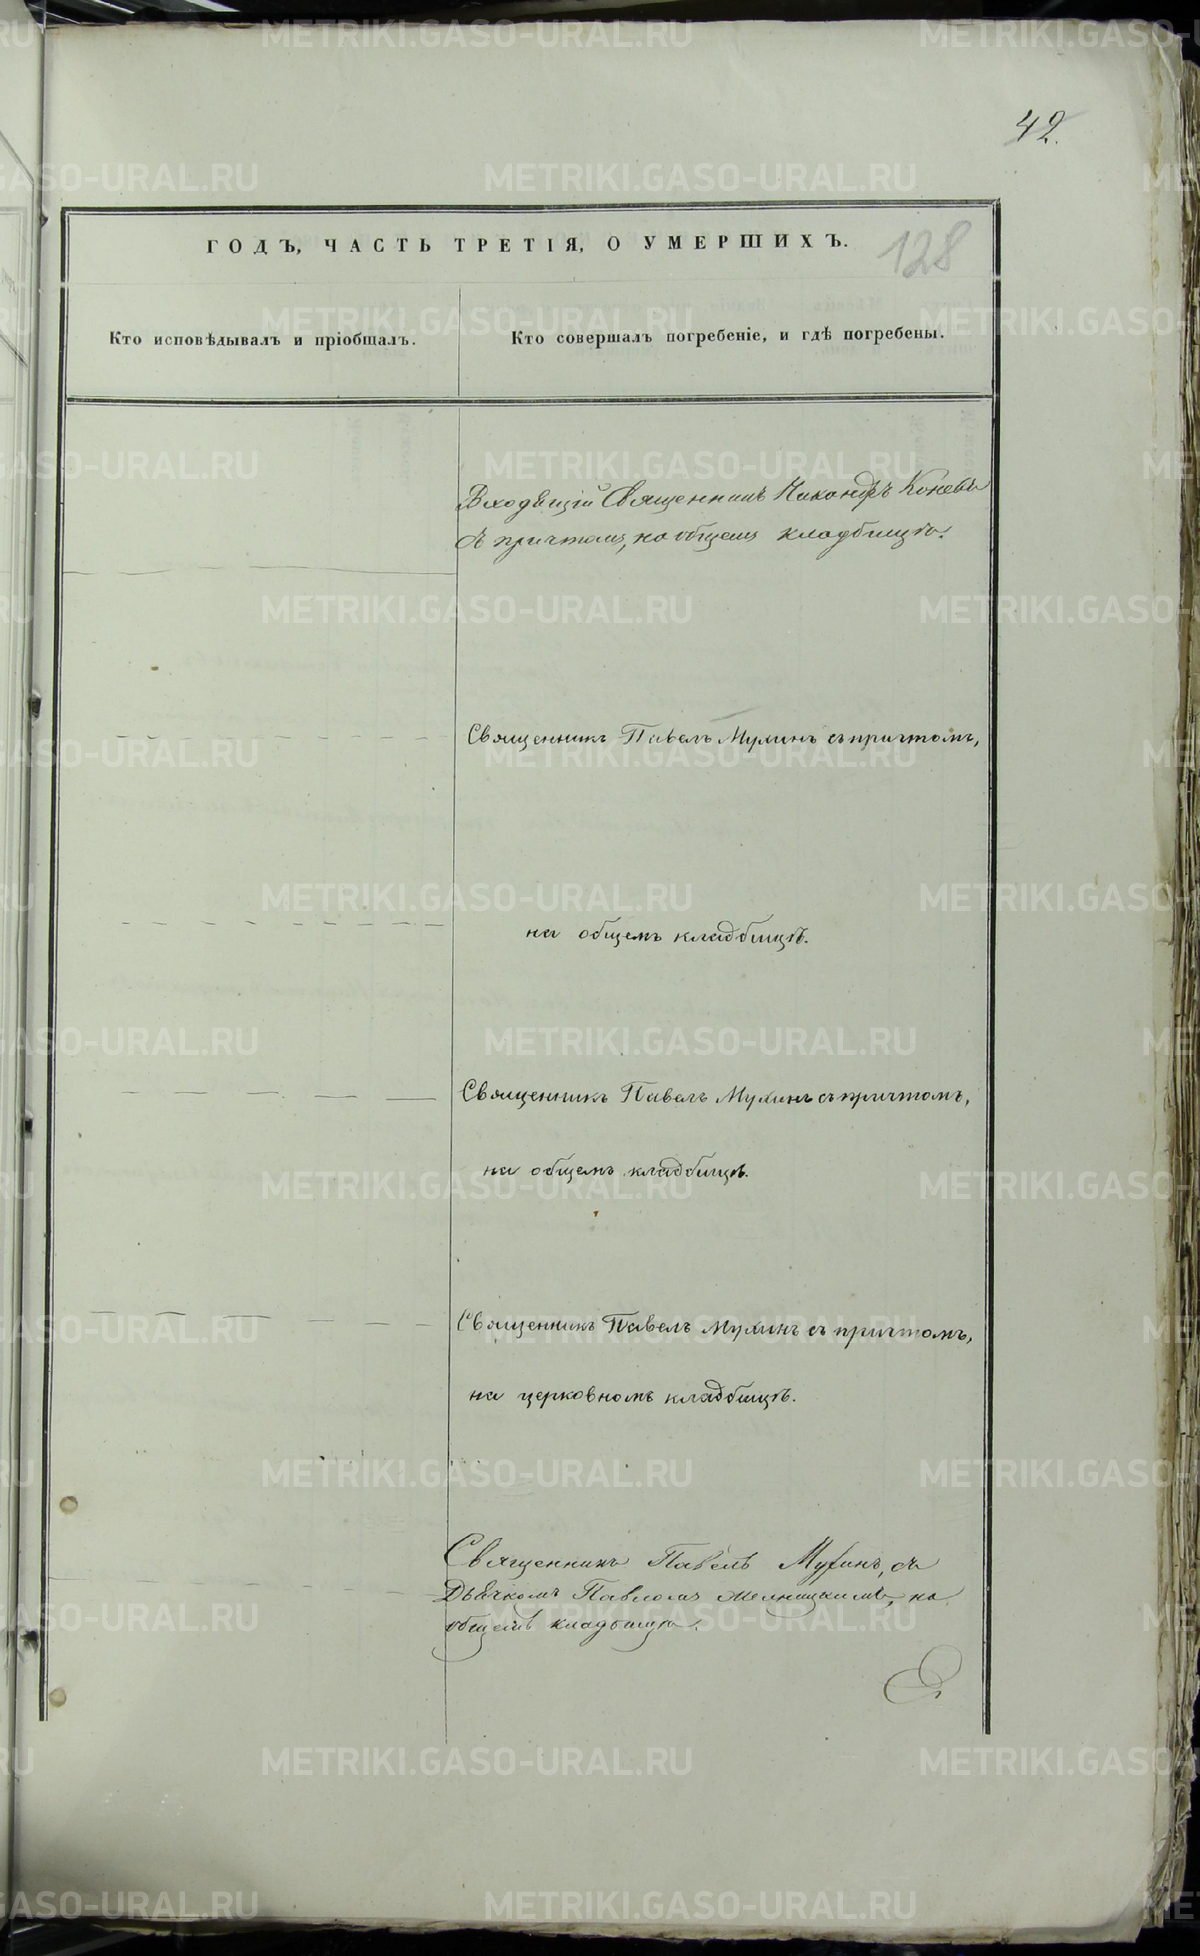 42.
ГОДЪ, ЧАСТЬ ТРЕТІЯ, О УМЕРШИХЪ.
128
Кто исповѣдывалъ и пріобщалъ.
Кто совершалъ погребеніе, и гдѣ погребены.
Священникъ Никандръ Коневъ
съ причтомъ, на общемъ кладбищѣ.
Священникъ Павелъ Мухинъ съ причтомъ,
на общемъ кладбищѣ.
Священникъ Павелъ Мухинъ съ причтомъ,
на общемъ кладбищѣ.
Священникъ Павелъ Мухинъ съ причтомъ,
на церковномъ кладбищѣ.
Священникъ Павелъ Мухинъ, съ
Дьячкомъ Павломъ на
общемъ кладбищѣ.
METRIKI.GASO-URAL.RU